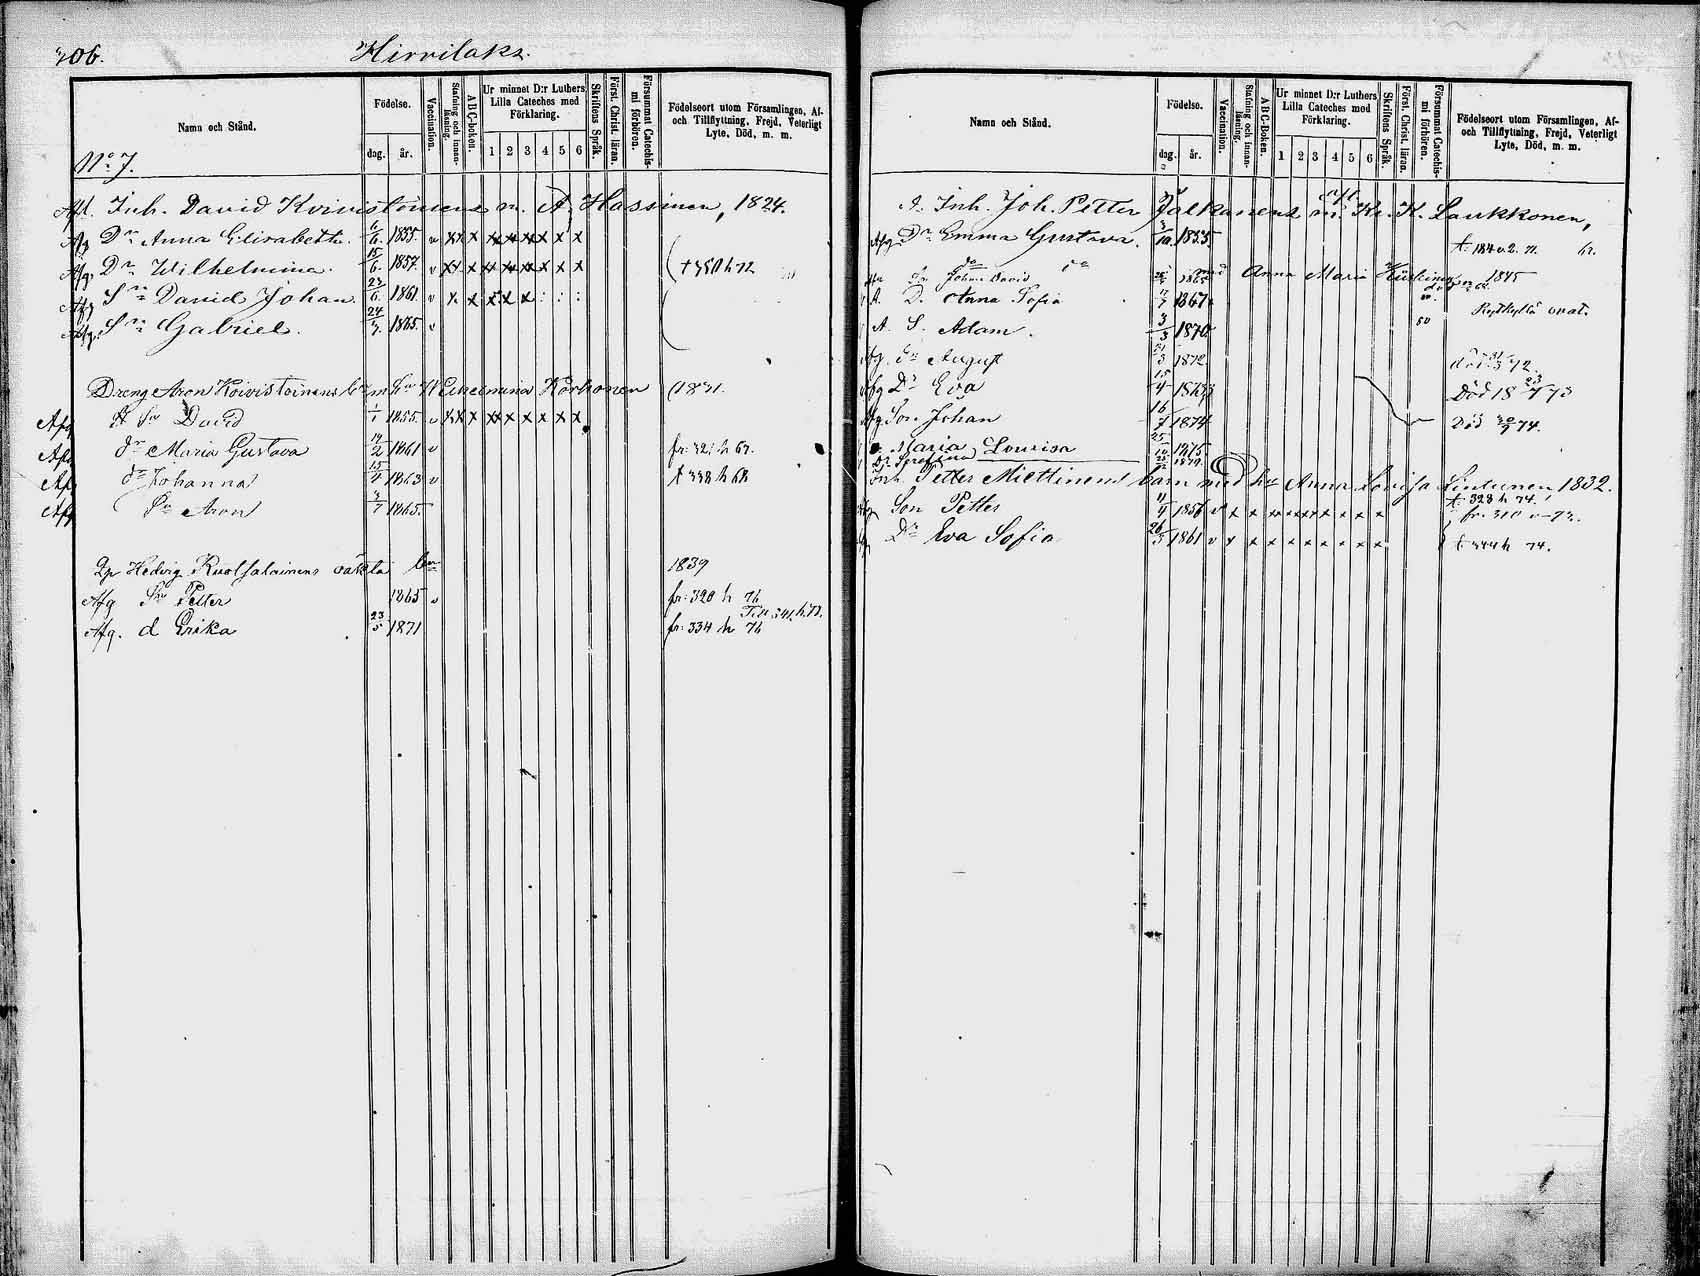 306. Hirvilaks.
Namn och Stånd. Födelse. dag. år. Vaccination. Stafning och innanläsning. ABC-boken. Ur minnet D:r Luthers Lilla Cateches med Förklaring. 1 2 3 4 5 6 Skriftens Språk. Först. Christ. läran. Försummat Catechismi förhören. Födelseort utom Församlingen, Af- och Tillflyttning, Frejd, Veterligt Lyte, Död, m. m.
No 7.
Inh. David Koivistoinens m. A. Hassinen, 1824.
Afg Dr Anna Elisabeth. 6/6. 1855. v x x x x x x x x x
Afg. Dr Wilhelmina. 15/6. 1857. v x x x x x x x x x
Afg Sn David Johan 23/6. 1861. v x x x x x x : : :
Afg. Sn Gabriel. 24/3. 1865. v
Dreng Aron Koivistoinens bn m hu Wilhelmina Korhonen (1831.
Afg Sn David 1/1 1855. v x x x x x x x x x
Afg dr Maria Gustava 19/2 1861 v fr: 321 h 67.
Afg dr Johanna 15/4 1863 v t 338 h 68
Afg Sn Aron 3/7 1865
Hedvig Ruotsalainens bn 1839
Afg Sn Petter 1865 v fr: 320 h 76
Afg. d Erika 23/5 1871 fr: 334 h 76
Namn och Stånd. Födelse. dag. år. Vaccination. Stafning och innanläsning. ABC-Boken. Ur minnet D:r Luthers Lilla Cateches med Förklaring. 1 2 3 4 5 6 Skriftens Språk. Först. Christ. läran. Försummat Catechismi förhören. Födelseort utom Församlingen, Af- och Tillflyttning, Frejd, Veterligt Lyte, Död, m. m.
A. Inh. Joh. Petter Jalkanens m. K. Laukkonen,
Afg Dr Emma Gustava. 3/10. 1855
Sn Johan David 1865 med Anna Maria 1845
A. D. Anna Sofia 7/7 1867
A. S. Adam. 3/3 1870
Afg. Sn August 1872 död 31/3 72.
Afg Dr Eva 15/4 1873 Död 18 23/7 73
Afg Son Johan 16/7 1874 Död 74.
Maria Lovisa 25/10 1875
Inh Petter Miettinens barn med hu Anna Lovisa Lintunen 1832.
t. 328 h 74.
Afg Son Petter 11/4 1856 v x x x x x x x x x fr: 310 v 72.
Dr Eva Sofia 26/5 1861 v x x x x x x x x x t. 344 h 74.